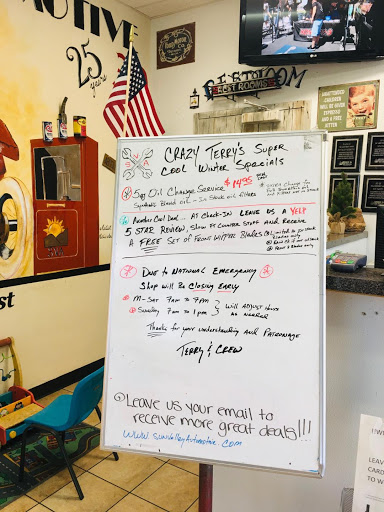 OMOTIVE
25
years
RESTROOM
REST ROOMS
UNATTENDED
CHILDREN
WILL BE GIVEN
ESPRESSO
AND A
FREE KITTEN
SNA
CRAZY TERRY'S SUPER
COOL WINTER SPECIALS
5qt Oil Change Service $14.95
Synthetic Blend oil - In Stock oil filters
Another Cool Deal - At Check-IN LEAVE US A YELP
5 STAR REVIEW, Show it Counter Staff AND Receive
A FREE Set of Front Wiper Blades
Due to NATIONAL EMERGENCY
Shop will Be Closing EARLY
M-SAT 7am to 7pm
Sunday 7am to 1pm } Will ADJUST Hours
as Needed
Thanks for your understanding AND PATRONAGE
TERRY & CREW
Leave us your email to
receive more great deals!!!
www.sunvalleyautomotive.com
LEAVE